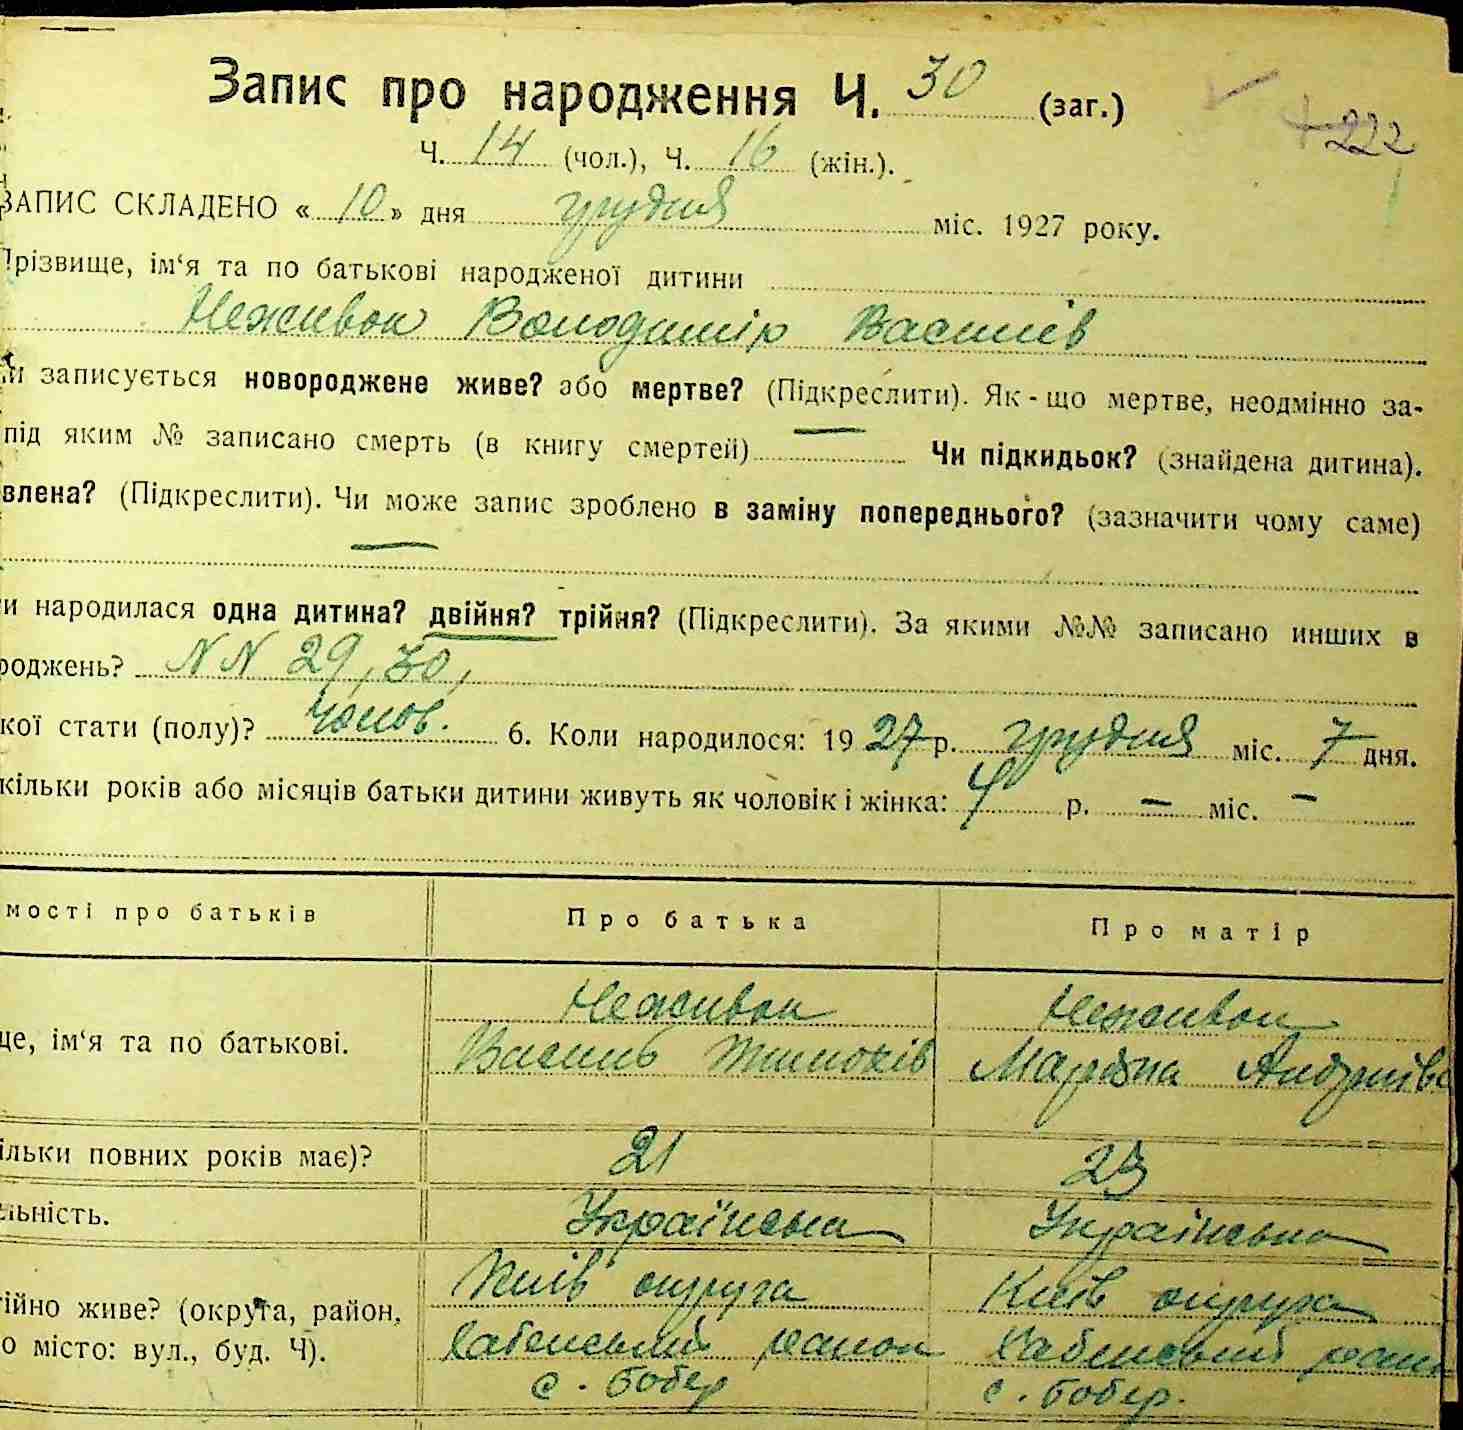 Запис про народження Ч. 30 (заг.)
222
Ч. 14 (чол.), Ч. 16 (жін.).
ЗАПИС СКЛАДЕНО « 10 » дня грудня міс. 1927 року.
Прізвище, ім‘я та по батькові народженої дитини
Неживок Володимір Василів
записується новороджене живе? або мертве? (Підкреслити). Як-що мертве, неодмінно за-
під яким № записано смерть (в книгу смертей) — Чи підкидьок? (знайдена дитина).
влена? (Підкреслити). Чи може запис зроблено в заміну попереднього? (зазначити чому саме)
—
и народилася одна дитина? двійня? трійня? (Підкреслити). За якими №№ записано инших в
роджень? NN 29, 30,
кої стати (полу)? чолов. 6. Коли народилося: 1927 р. грудня міс. 7 дня.
кільки років або місяців батьки дитини живуть як чоловік і жінка: 4 р. — міс. —
мості про батьків Про батька Про матір
ще, ім‘я та по батькові. Неживок Неживок
Василь Мар‘яна Андриїв
ільки повних років має)? 21 23
льність. Українська Українська
тійно живе? (округа, район, Київ округа Київ округа
о місто: вул., буд. Ч). Хабенський район Хабенський район
с. Бобер с. Бобер.